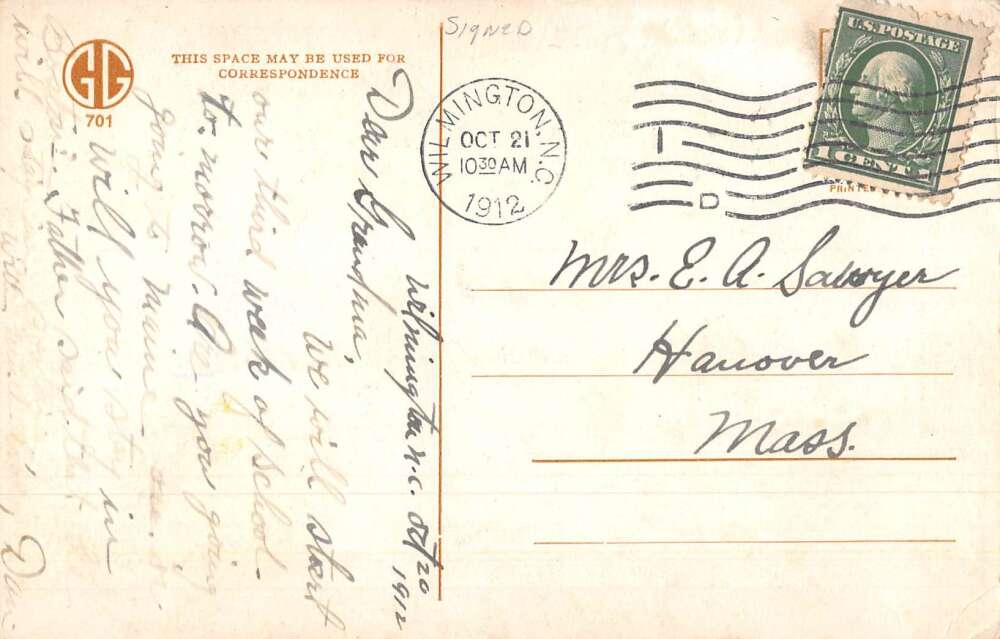 SIGNED
HG
701
THIS SPACE MAY BE USED FOR
CORRESPONDENCE
WILMINGTON, N.C.
OCT 21
10 30 AM
1912
I
D
U.S. POSTAGE
1 CENT
PRINTE
Mrs. E. A. Sawyer
Hanover
Mass.
Wilmington N.C. Oct 20 1912
Dear Grandma,
We will start
our third week of school
to-morrow. Are you going
going to Maine
will you stay in
Father said that
will
with